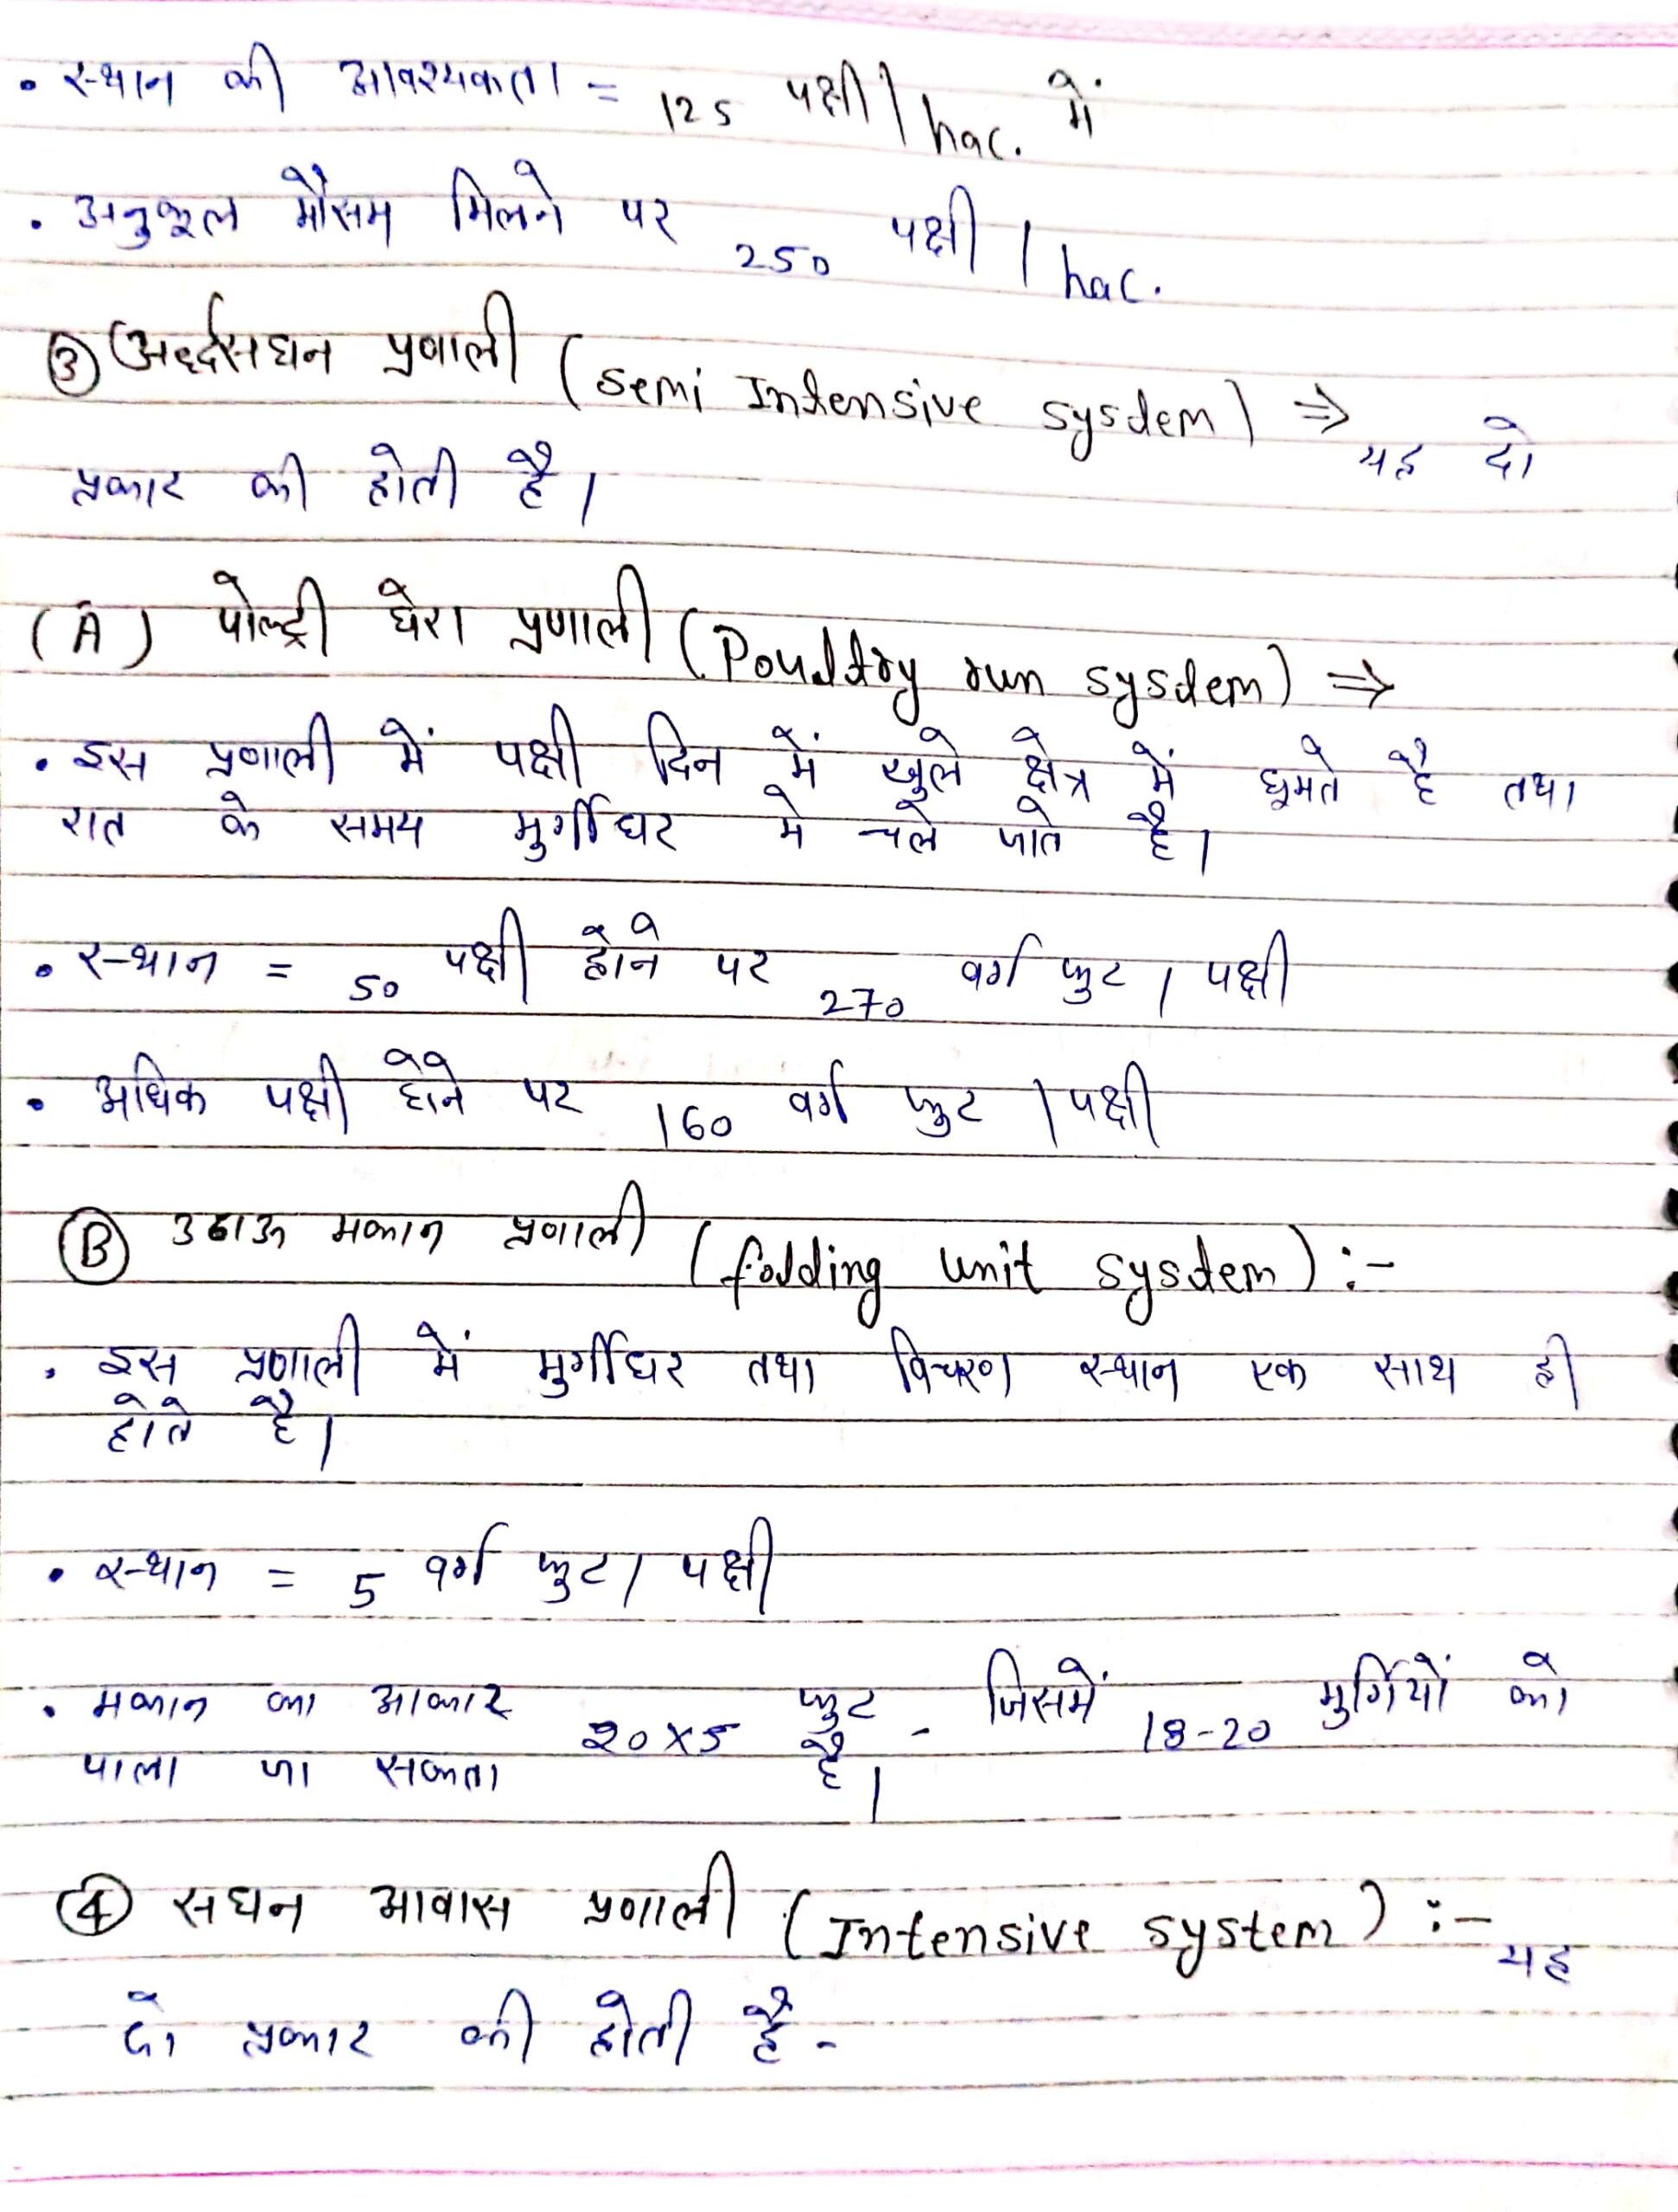 • स्थान की आवश्यकता = 125 पक्षी / hac. में
• अनुकूल मौसम मिलने पर 250 पक्षी / hac.
③ अर्द्धसघन प्रणाली (Semi Intensive system) ⇒ यह दो
प्रकार की होती है।
(A) पोल्ट्री घेरा प्रणाली (Poultry run system) ⇒
• इस प्रणाली में पक्षी दिन में खुले क्षेत्र में घूमते है तथा
रात के समय मुर्गीघर मे चले जाते है।
• स्थान = 50 पक्षी होने पर 270 वर्ग फुट / पक्षी
• अधिक पक्षी होने पर 160 वर्ग फुट / पक्षी
Ⓑ उठाऊ मकान प्रणाली (folding unit system) :-
• इस प्रणाली में मुर्गीघर तथा विचरण स्थान एक साथ ही
होते है।
• स्थान = 5 वर्ग फुट / पक्षी
• मकान का आकार 20×5 फुट - जिसमें 18-20 मुर्गियों को
पाला जा सकता है।
④ सघन आवास प्रणाली (Intensive system) :- यह
दो प्रकार की होती है -